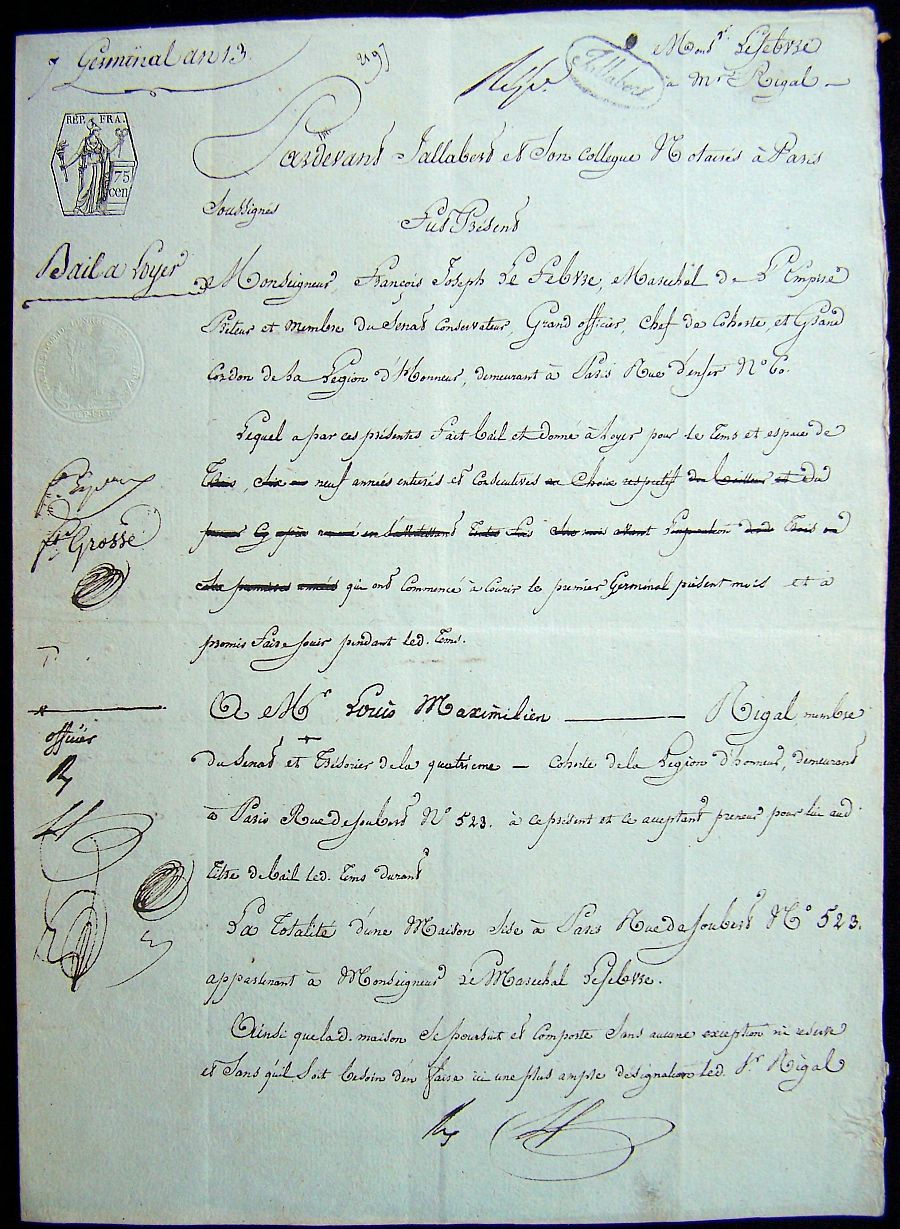 7 Germinal an 13.
Mons.r Lefebvre
à Mr Rigal
Jallabert
REP. FRA.
75
cen
Pardevant Jallabert et Son collegue Notaires à Paris
Soussignés
Fut Présent
Bail a Loyer
Monseigneur, François Joseph Le Febvre, Marechal de L'Empire
Preteur et membre du Senat Conservateur, Grand officier, Chef de Cohorte, et Grand
Cordon de la Legion d'Honneur, demeurant à Paris Rue d'enfer N.o 60.
Lequel a par ces présentes fait bail et donné à loyer pour le tems et espace de
Trois, Six ou neuf années entieres et Consecutives au Choix respectif du bailleur et du
avant L'expiration des Trois ou
Six premieres années qui ont Commencé à Courir le premier Germinal présent mois et a
promis faire jouir pendant led. tems.
fte Grosse
A Mr Louis Maximilien Rigal membre
du Senat et Trésorier de la quatrieme Cohorte de la Legion d'honneur, demeurant
officier
à Paris Rue de Joubert N.o 523. à ce présent et ce acceptant preneur pour lui aud
titre de bail led. tems durant
La Totalité d'une Maison Sise à Paris Rue de Joubert N.o 523.
appartenant à Monseigneur Le Marechal Lefebvre.
Ainsi que lad. maison Se poursuit et Comporte Sans aucune exception ni reserve
et Sans qu'il Soit besoin d'en faire ici une plus ample designation led. Sr Rigal